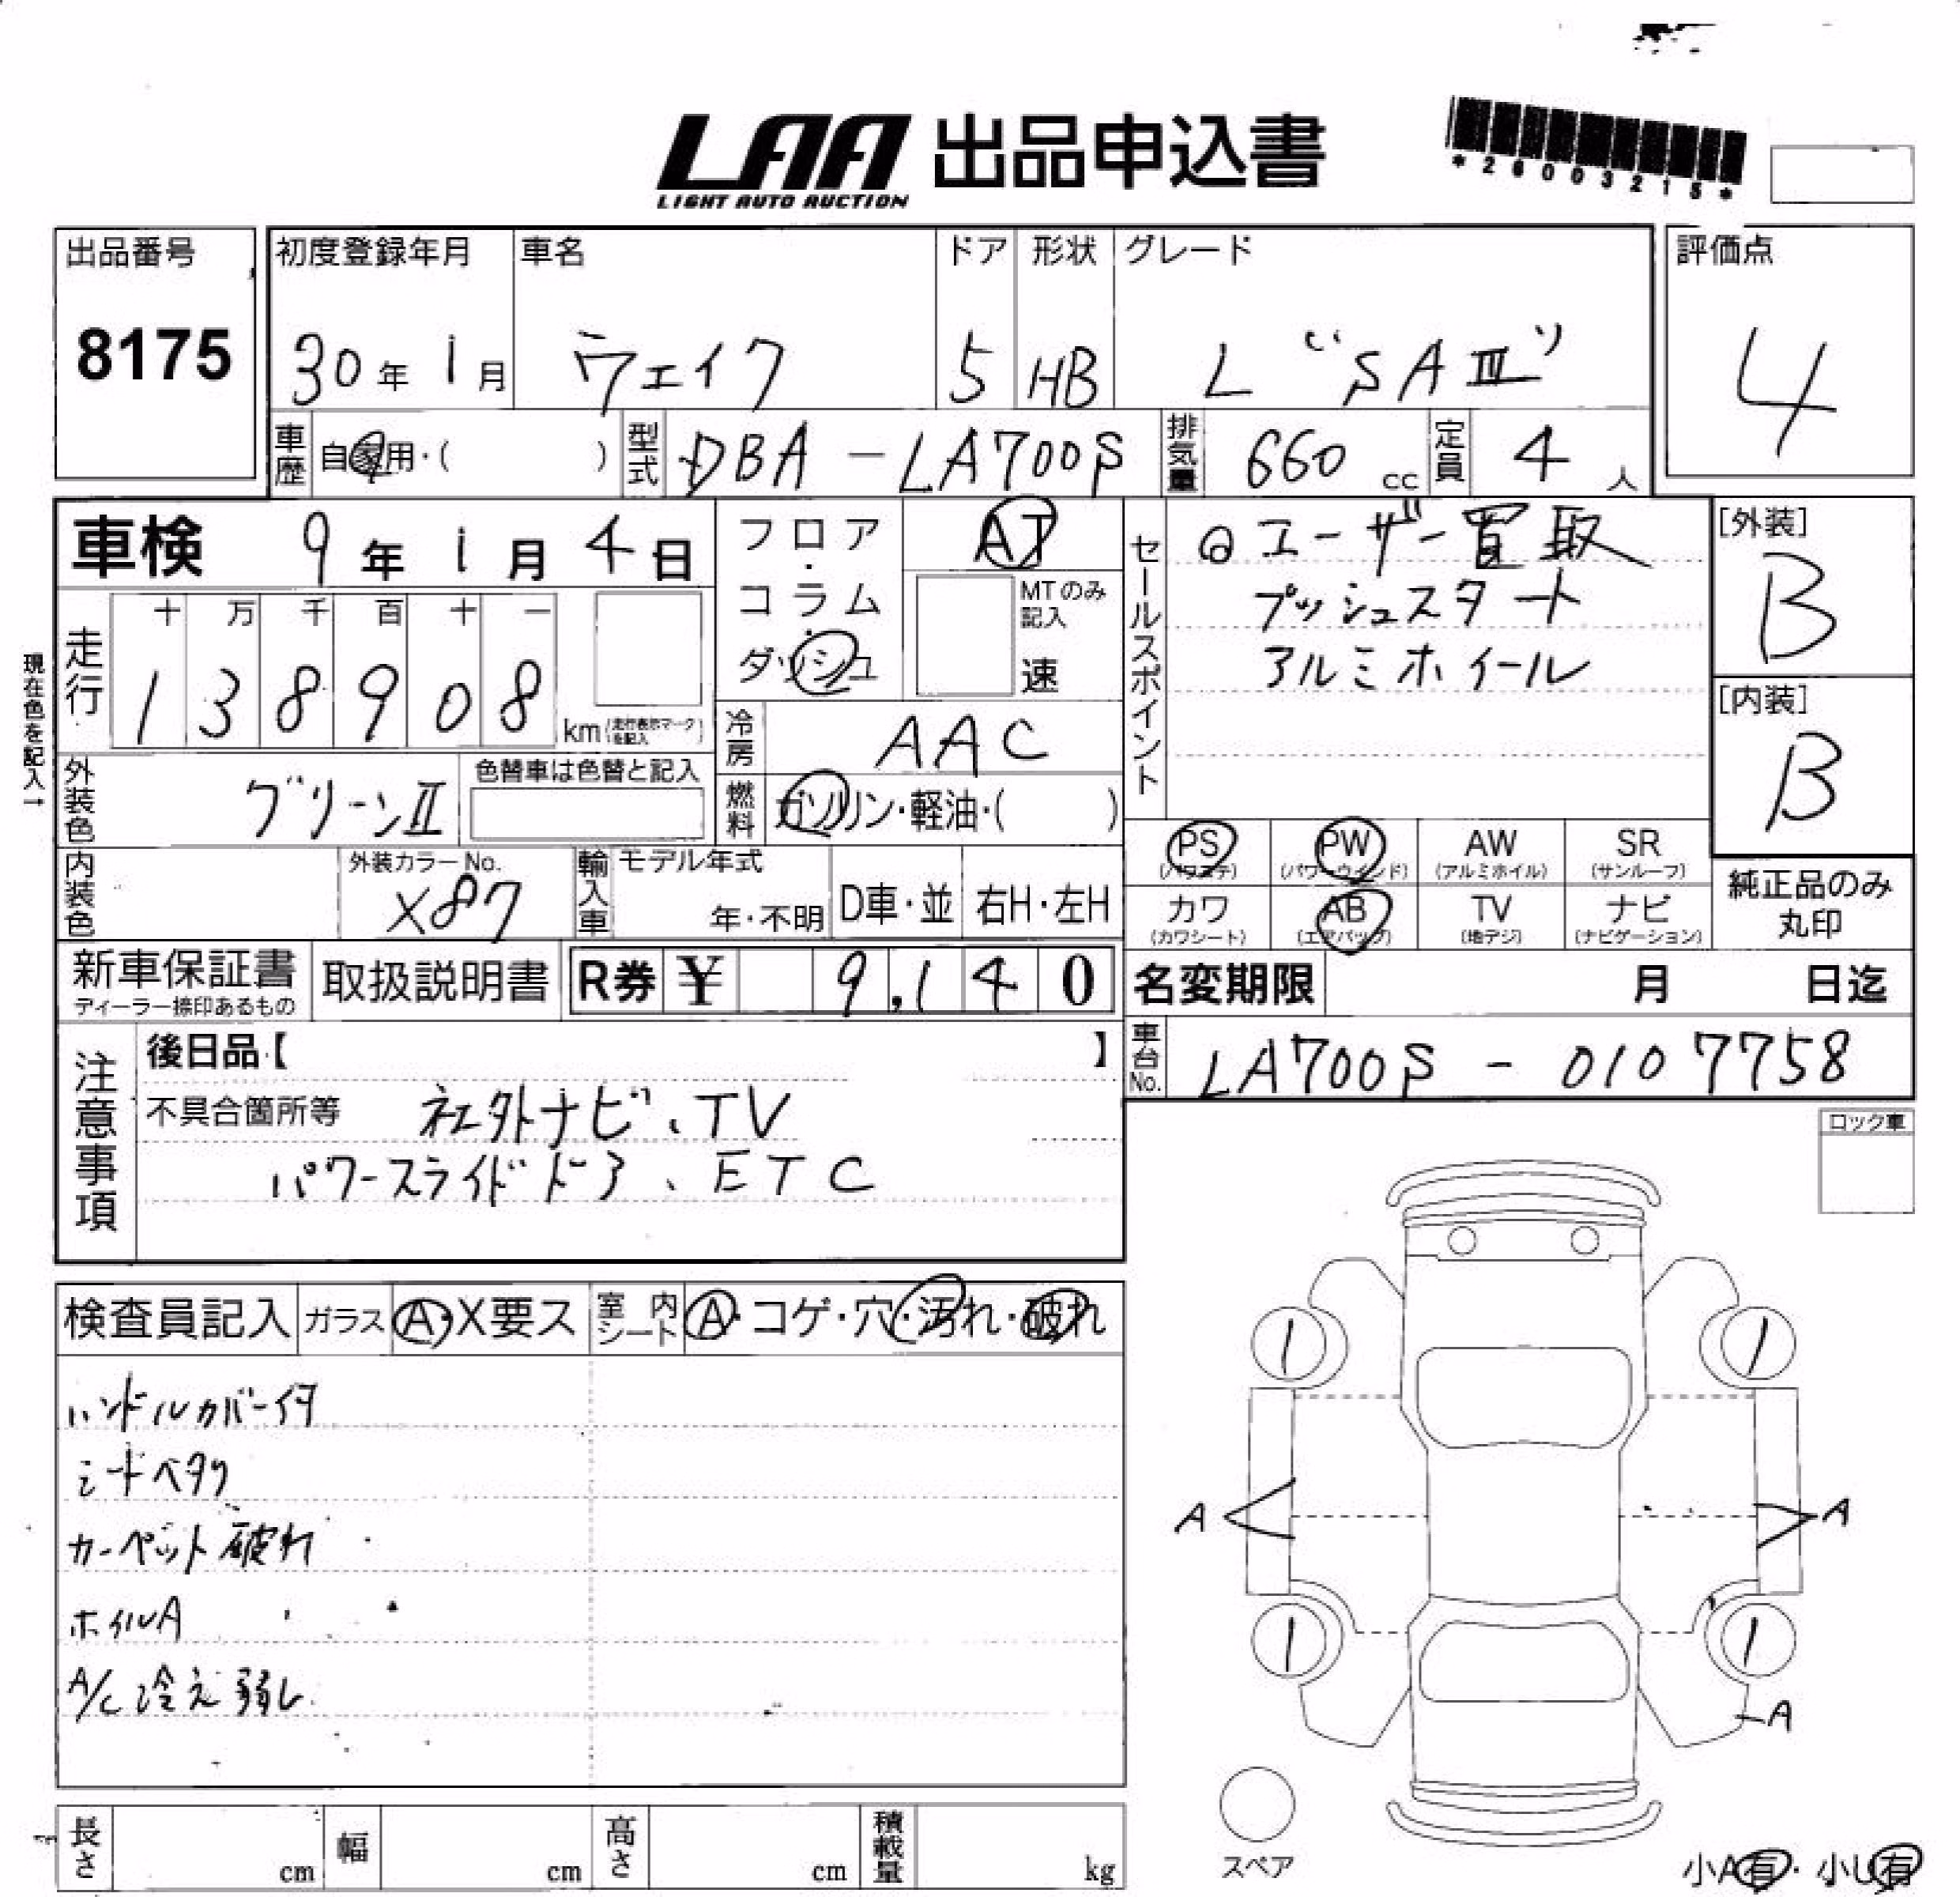 LAA 出品申込書
LIGHT AUTO AUCTION
*26003215*
出品番号
8175
初度登録年月 車名 ドア 形状 グレード
30年 1月 ウェイク 5 HB L "SAⅢ"
評価点
4
車歴 自家用・( ) 型式 DBA-LA700S 排気量 660 cc 定員 4 人
車検 9年 1月 4日
フロア・コラム・ダッシュ
AT
MTのみ記入
速
セールスポイント
◎ユーザー買取
プッシュスタート
アルミホイール
[外装]
B
[内装]
B
現在色を記入→
走行 十 万 千 百 十 一
1 3 8 9 0 8 km (走行表示マークを記入)
冷房 AAC
燃料 ガソリン・軽油・( )
外装色 グリーンⅡ 色替車は色替と記入
内装色 外装カラーNo. X87
輸入車 モデル年式 年・不明 D車・並 右H・左H
PS (パワステ) PW (パワーウィンド) AW (アルミホイル) SR (サンルーフ)
カワ (カワシート) AB (エアバッグ) TV (地デジ) ナビ (ナビゲーション)
純正品のみ丸印
新車保証書 ディーラー捺印あるもの 取扱説明書 R券 ¥ 9,140
名変期限 月 日迄
車台No. LA700S-0107758
注意事項
後日品【 】
不具合箇所等 社外ナビ、TV
パワースライドドア、ETC
ロック車
検査員記入 ガラス A・X要ス 室内シート A・コゲ・穴・汚れ・破れ
ハンドルカバー付
シートヘタリ
カーペット破れ
ホイルA
A/C冷え弱し
1 1
A A
1 1
A
スペア
小A有・小U有
長さ cm 幅 cm 高さ cm 積載量 kg